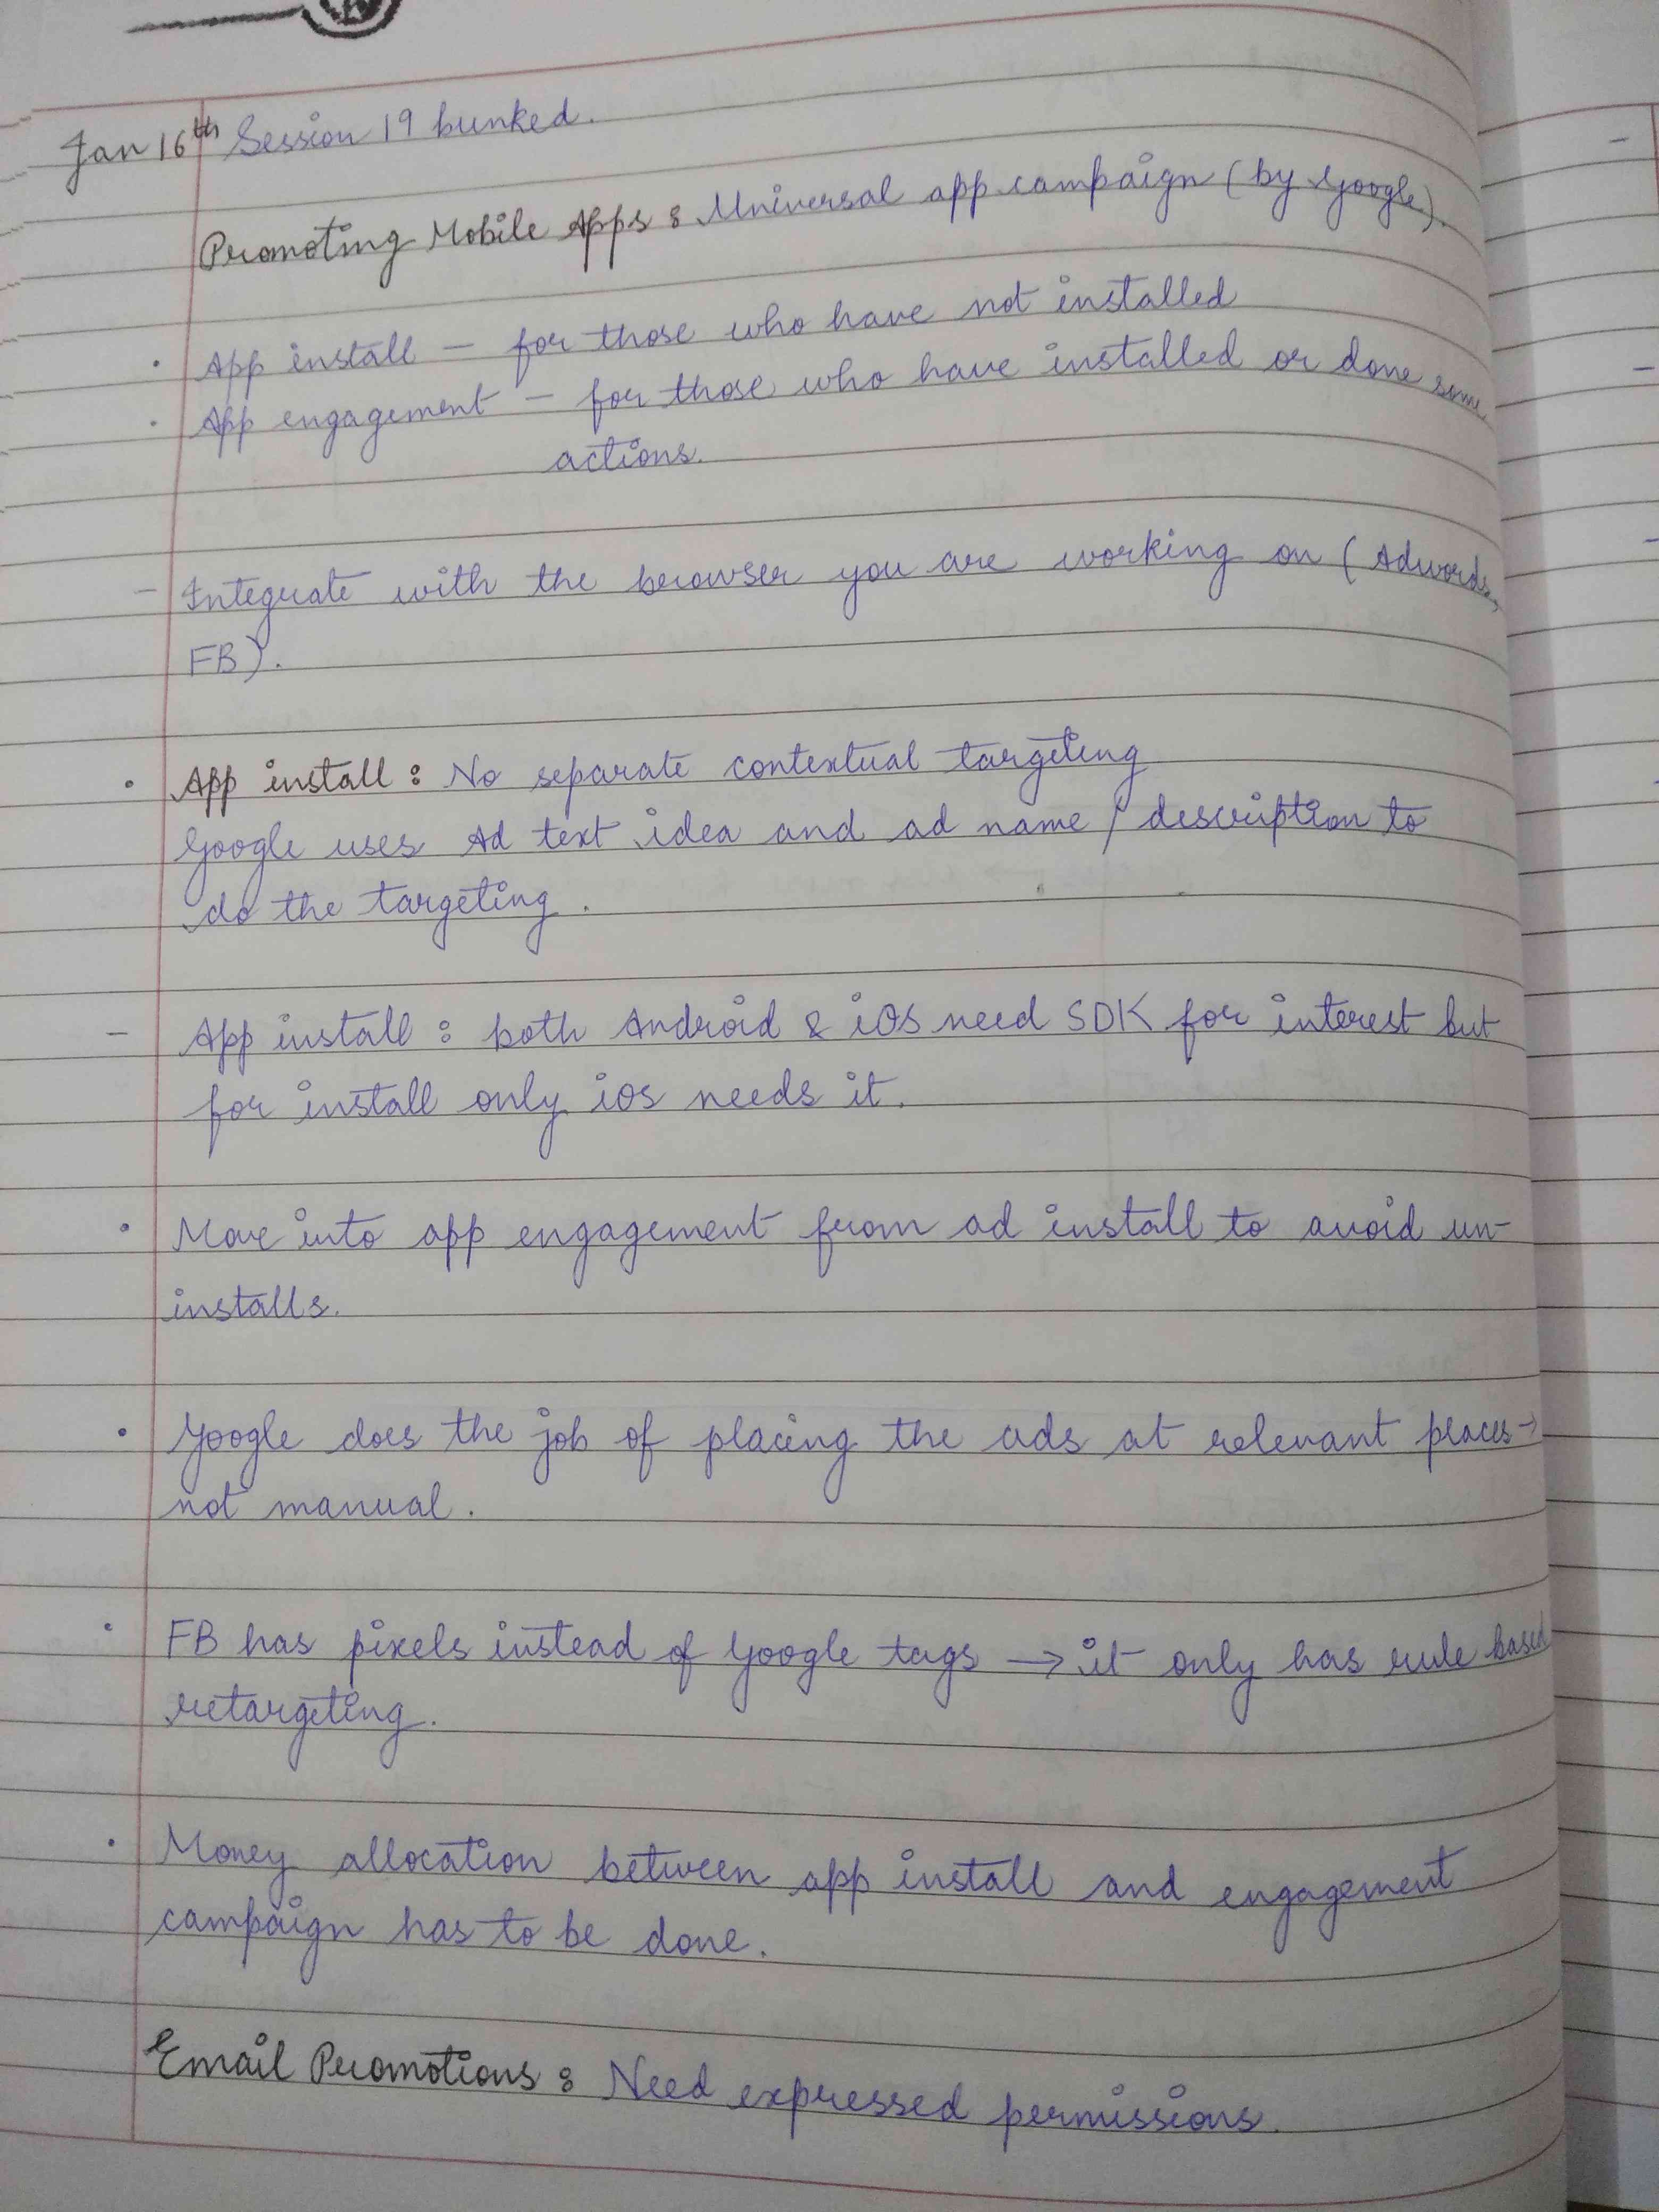 Jan 16th Session 19 bunked.
Promoting Mobile Apps : Universal app campaign (by Google).
• App install – for those who have not installed
• App engagement – for those who have installed or done some
actions.
– Integrate with the browser you are working on (Adwords,
FB).
• App install : No separate contextual targeting
Google uses Ad text idea and ad name / description to
do the targeting.
– App install : both Android & iOS need SDK for interest but
for install only iOS needs it.
• Move into app engagement from ad install to avoid un-
installs.
• Google does the job of placing the ads at relevant places →
not manual.
• FB has pixels instead of Google tags → it only has rule based
retargeting.
• Money allocation between app install and engagement
campaign has to be done.
Email Promotions : Need expressed permissions.